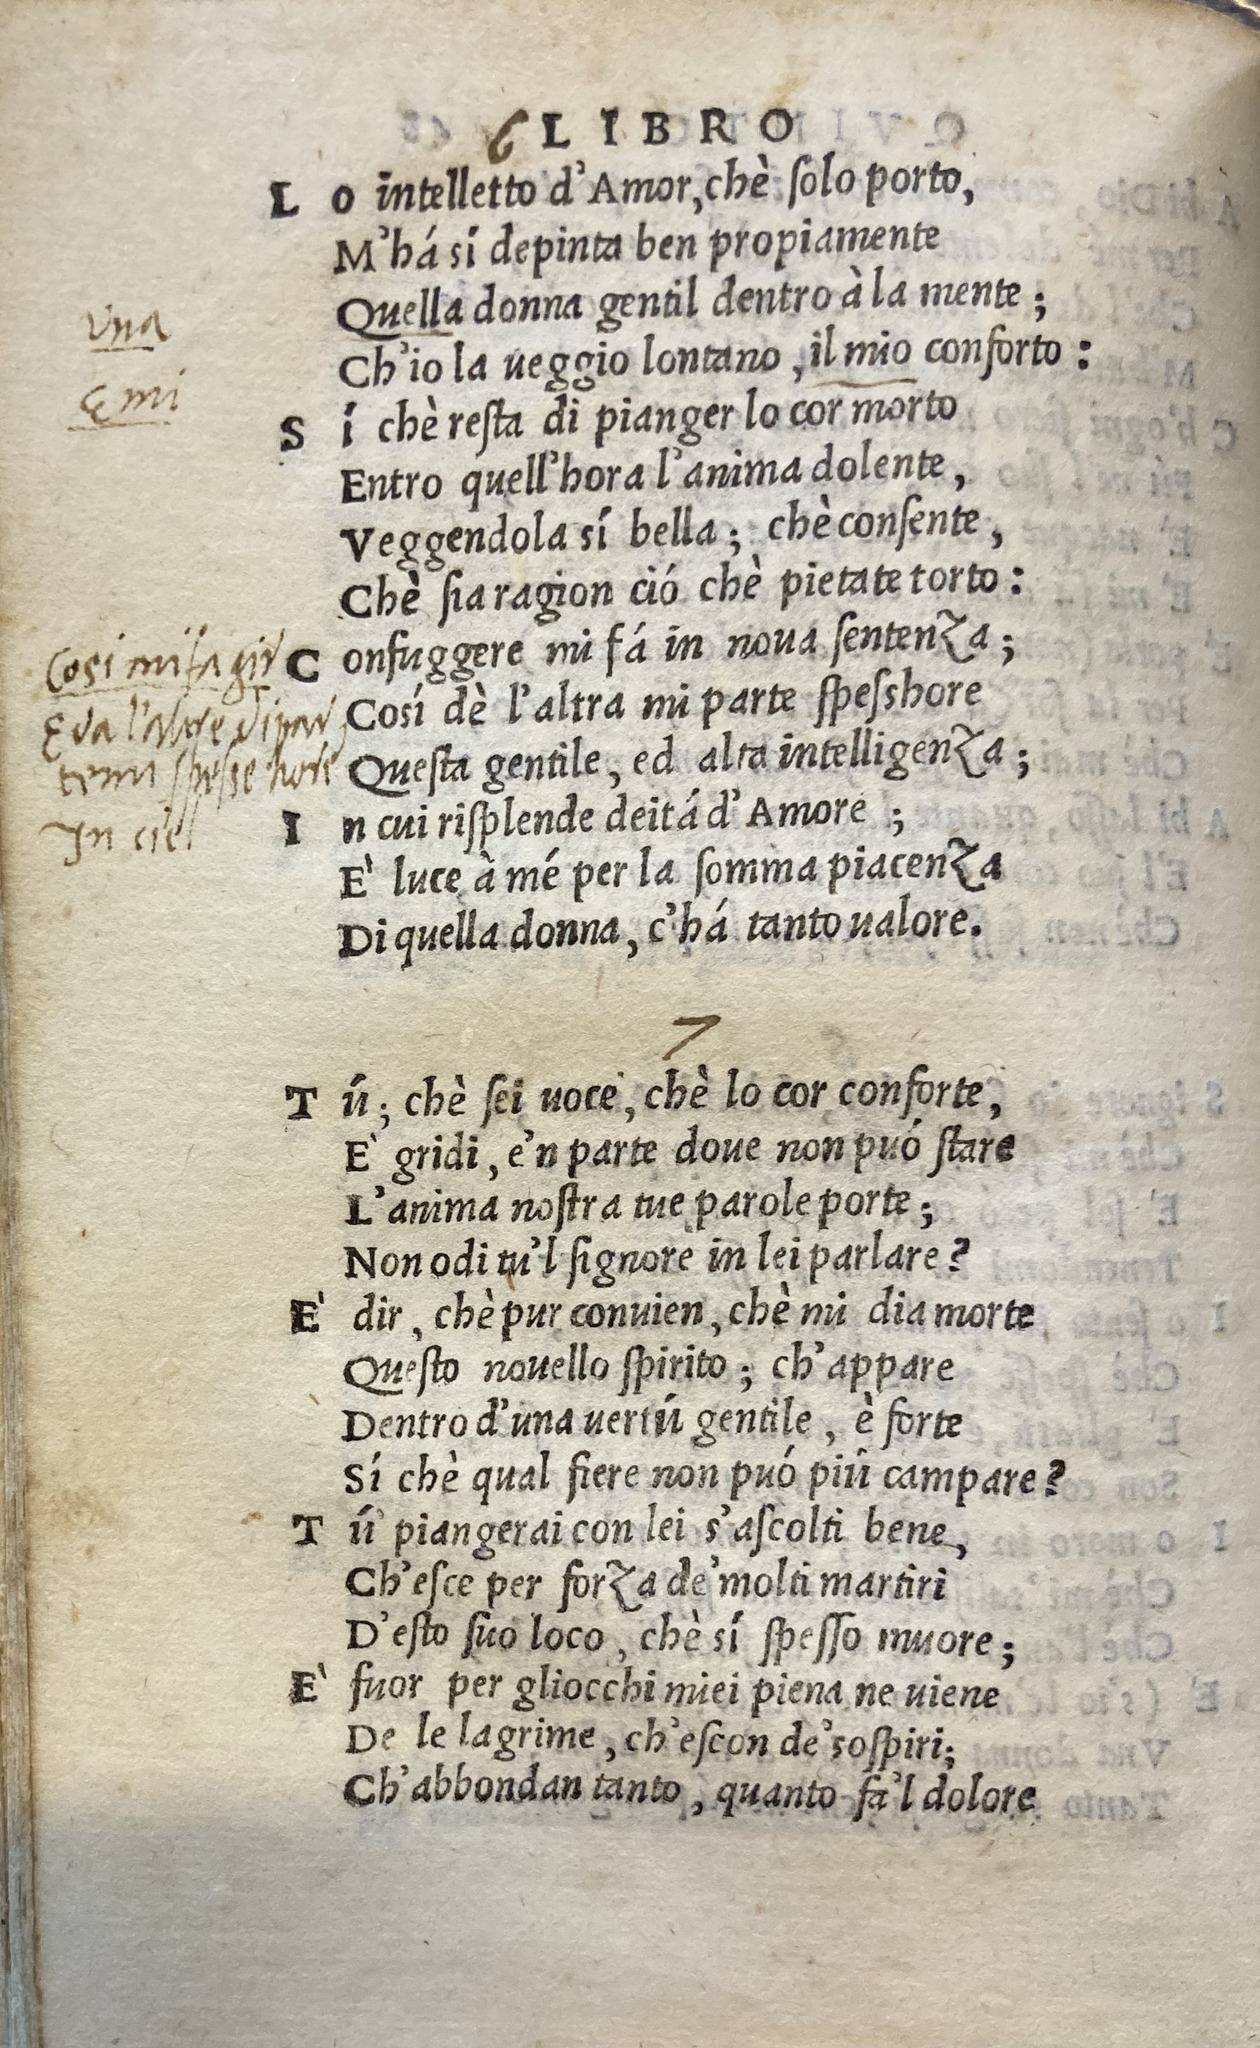 6 LIBRO
Lo intelletto d'Amor, chè ſolo porto,
M'há sí depinta ben propiamente
Quella donna gentil dentro à la mente;
Vna
Ch'io la ueggio lontano, il mio conforto:
E mi
Sí chè reſta di pianger lo cor morto
Entro quell'hora l'anima dolente,
Veggendola sí bella; chè conſente,
Chè ſia ragion ció chè pietate torto:
Cosi mi fa gir
Confuggere mi fá in noua ſentenza;
E da l'altre dipar
Cosí dè l'altra mi parte ſpeſshore
temi ſpeſse hore
Queſta gentile, ed alta intelligenza;
In ciel
In cui riſplende deitá d'Amore;
E' luce à mé per la ſomma piacenza
Di quella donna, c'há tanto ualore.
7
Tú; chè ſei uoce, chè lo cor conforte,
E' gridi, e'n parte doue non puó ſtare
L'anima noſtra tue parole porte;
Non odi tu'l ſignore in lei parlare?
E' dir, chè pur conuien, chè mi dia morte
Queſto nouello ſpirito; ch'appare
Dentro d'una uertú gentile, è forte
Sí chè qual fiere non puó piú campare?
Tú piangerai con lei s'aſcolti bene,
Ch'eſce per forza de'molti martiri
D'eſto ſuo loco, chè sí ſpeſſo muore;
E' fuor per gliocchi miei piena ne uiene
De le lagrime, ch'eſcon de'soſpiri;
Ch'abbondan tanto, quanto fa'l dolore